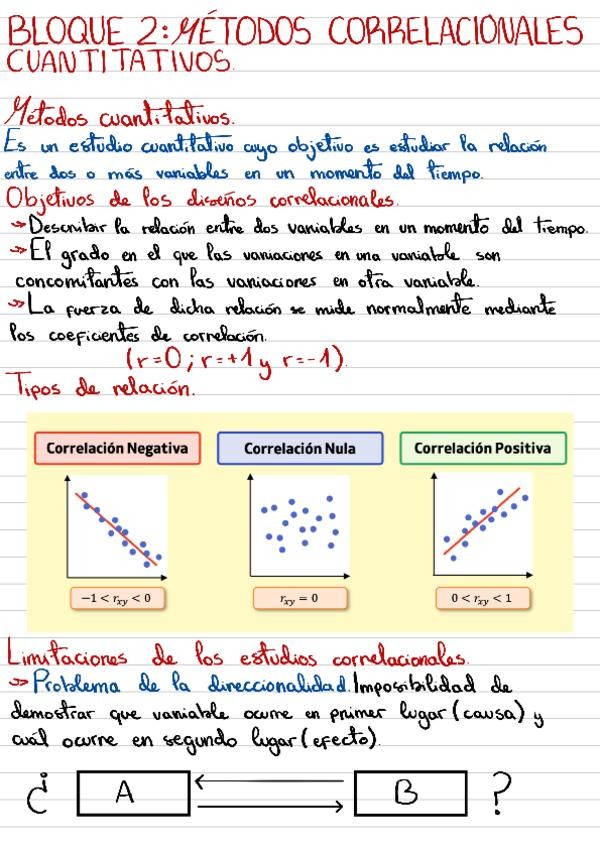 BLOQUE 2: MÉTODOS CORRELACIONALES
CUANTITATIVOS.
Métodos cuantitativos.
Es un estudio cuantitativo cuyo objetivo es estudiar la relación
entre dos o más variables en un momento del tiempo.
Objetivos de los diseños correlacionales.
→ Describir la relación entre dos variables en un momento del tiempo.
→ El grado en el que las variaciones en una variable son
concomitantes con las variaciones en otra variable.
→ La fuerza de dicha relación se mide normalmente mediante
los coeficientes de correlación.
(r=0; r=+1 y r=-1).
Tipos de relación.
Correlación Negativa Correlación Nula Correlación Positiva
−1 < rxy < 0 rxy = 0 0 < rxy < 1
Limitaciones de los estudios correlacionales.
→ Problema de la direccionalidad. Imposibilidad de
demostrar que variable ocurre en primer lugar (causa) y
cuál ocurre en segundo lugar (efecto).
¿ A B ?